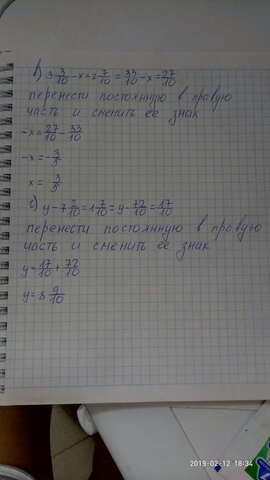 б) 3 3/10 - x = 2 7/10 = 33/10 - x = 27/10
перенести постоянную в правую
часть и сменить её знак
-x = 27/10 - 33/10
-x = -3/5
x = 3/5
с) y - 7 2/10 = 1 7/10 = y - 72/10 = 17/10
перенести постоянную в правую
часть и сменить её знак
y = 17/10 + 72/10
y = 8 9/10
2019-02-12 18:34